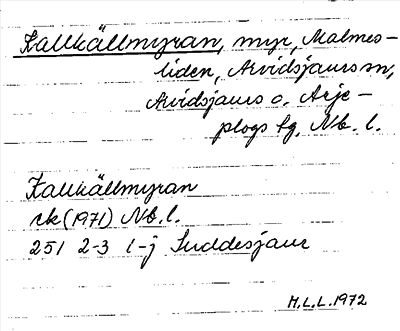 Kallkällmyran, myr, Malmes-
liden, Arvidsjaurs sn,
Arvidsjaurs o. Arje-
plogs tg, Nb. l.
Kallkällmyran
ek (1971) Nb. l.
251 2-3 i-j Suddesjaur
M.L.L. 1972